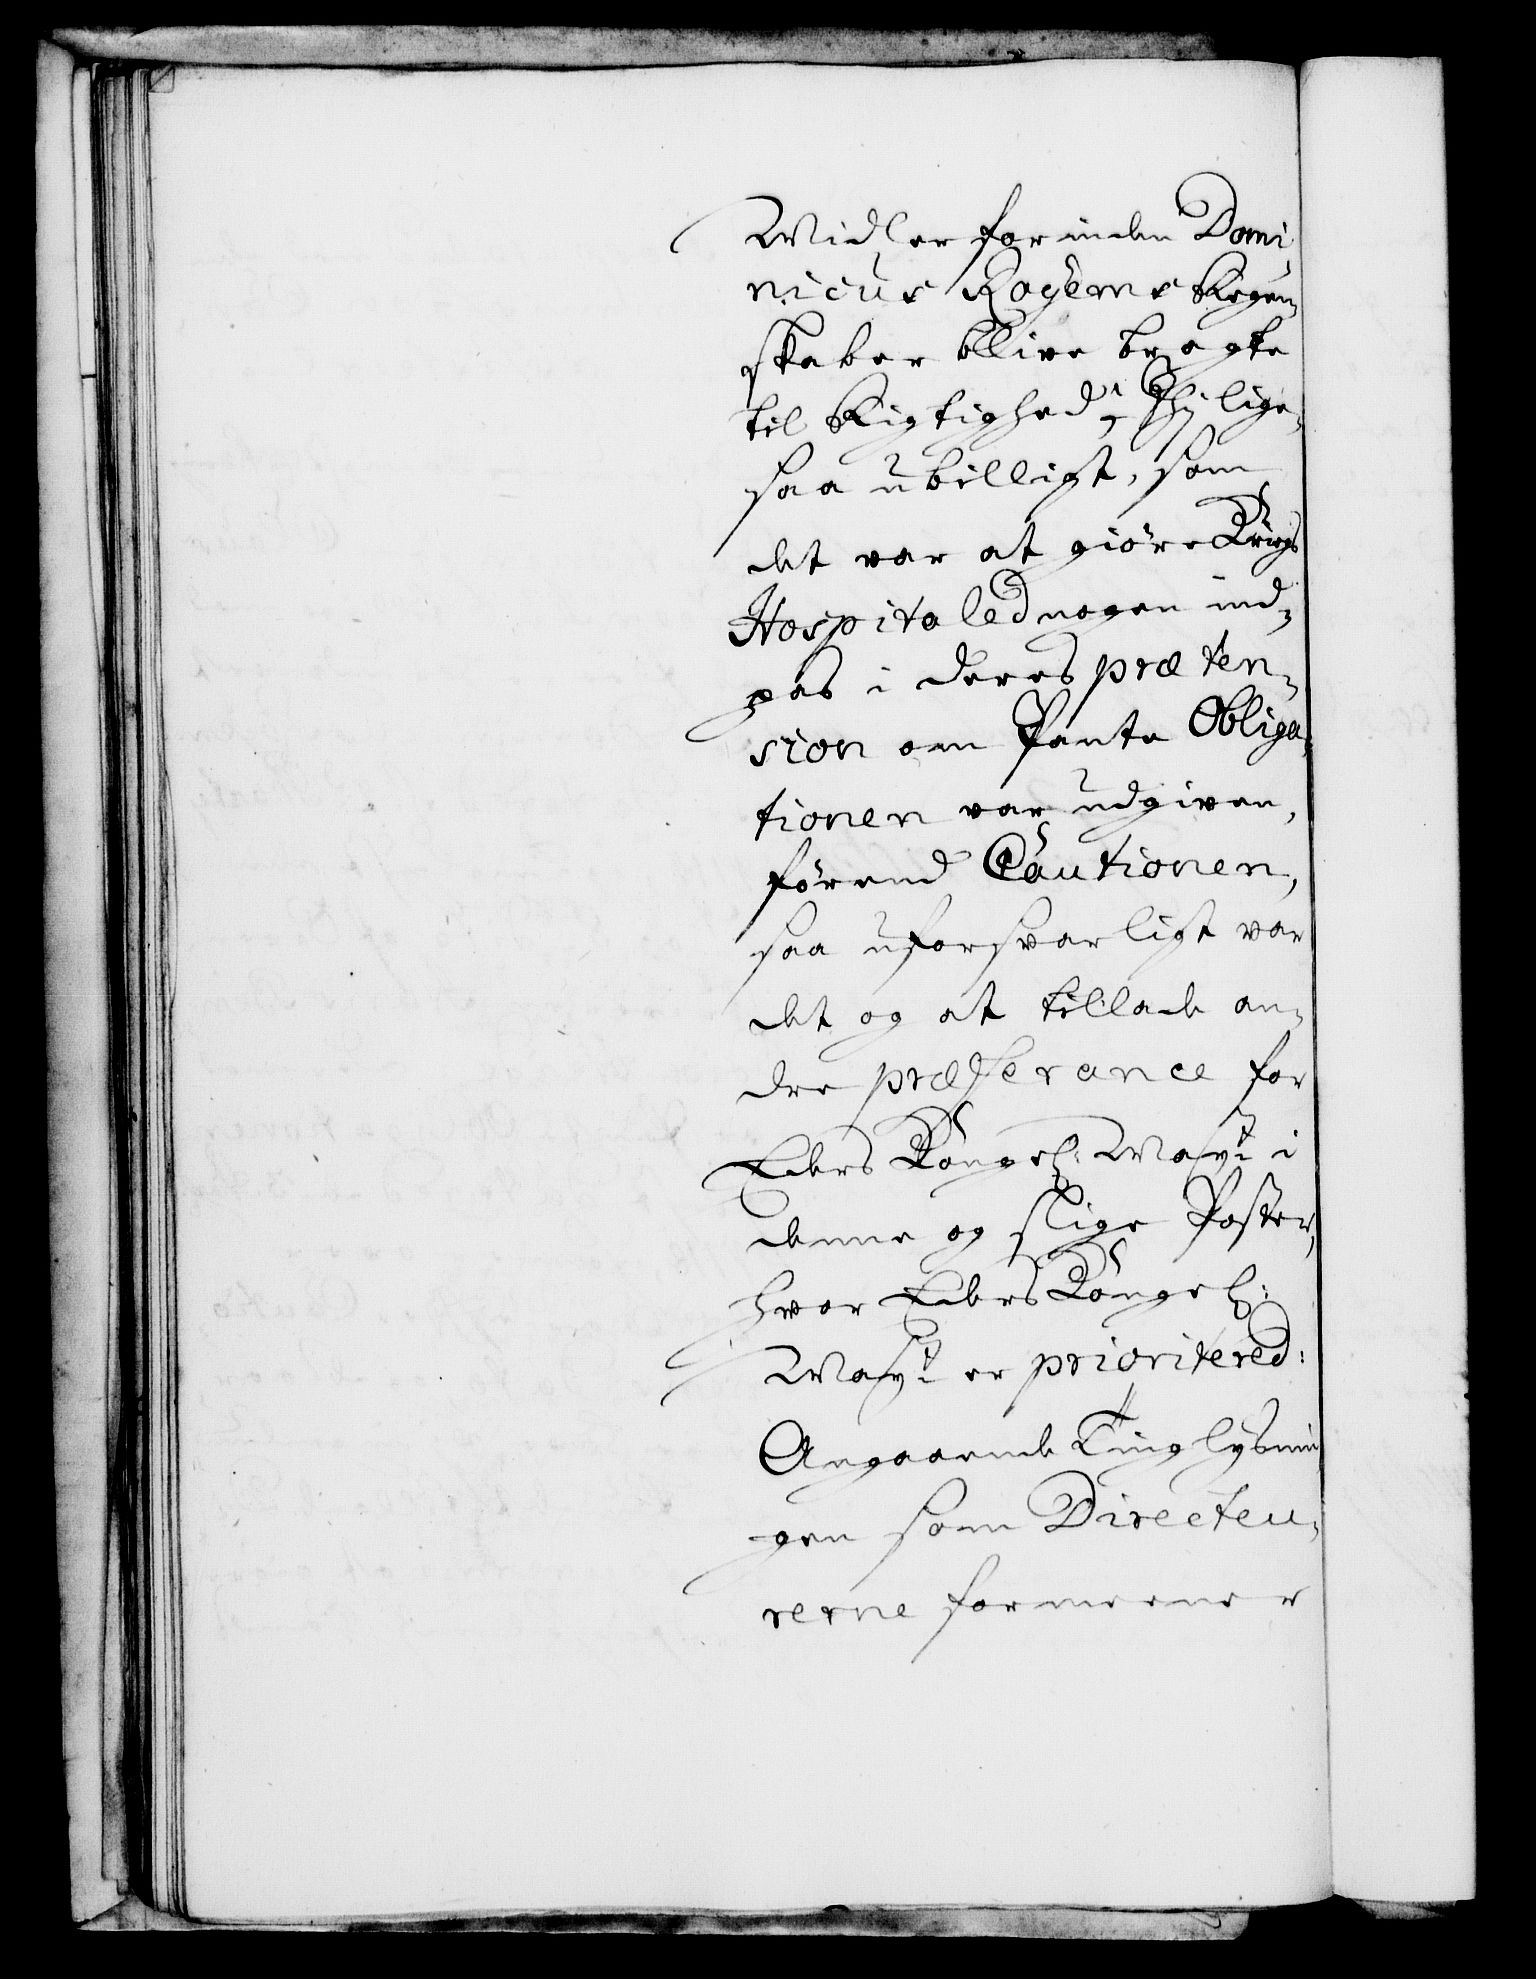 Midler forinden Domi-
nicus Rogems Regen-
skaber blive bragte
til Rigtighed; Thj lige-
saa ubilligt, som
det var at giöre Krigs
Hospitaled nogen ind-
pas i deres præten-
sion om Pante Obliga-
tionen var udgiven,
förend Cautionen,
saa uforsvarligt var
det og at tillade an-
dre præferance for
Eders Kongel: Mayt i
denne og slige Poster,
hvor Eders Kongel:
Mayt er prioritered:
Angaaende Tinglysnin-
gen som Directeu-
rerne formeener